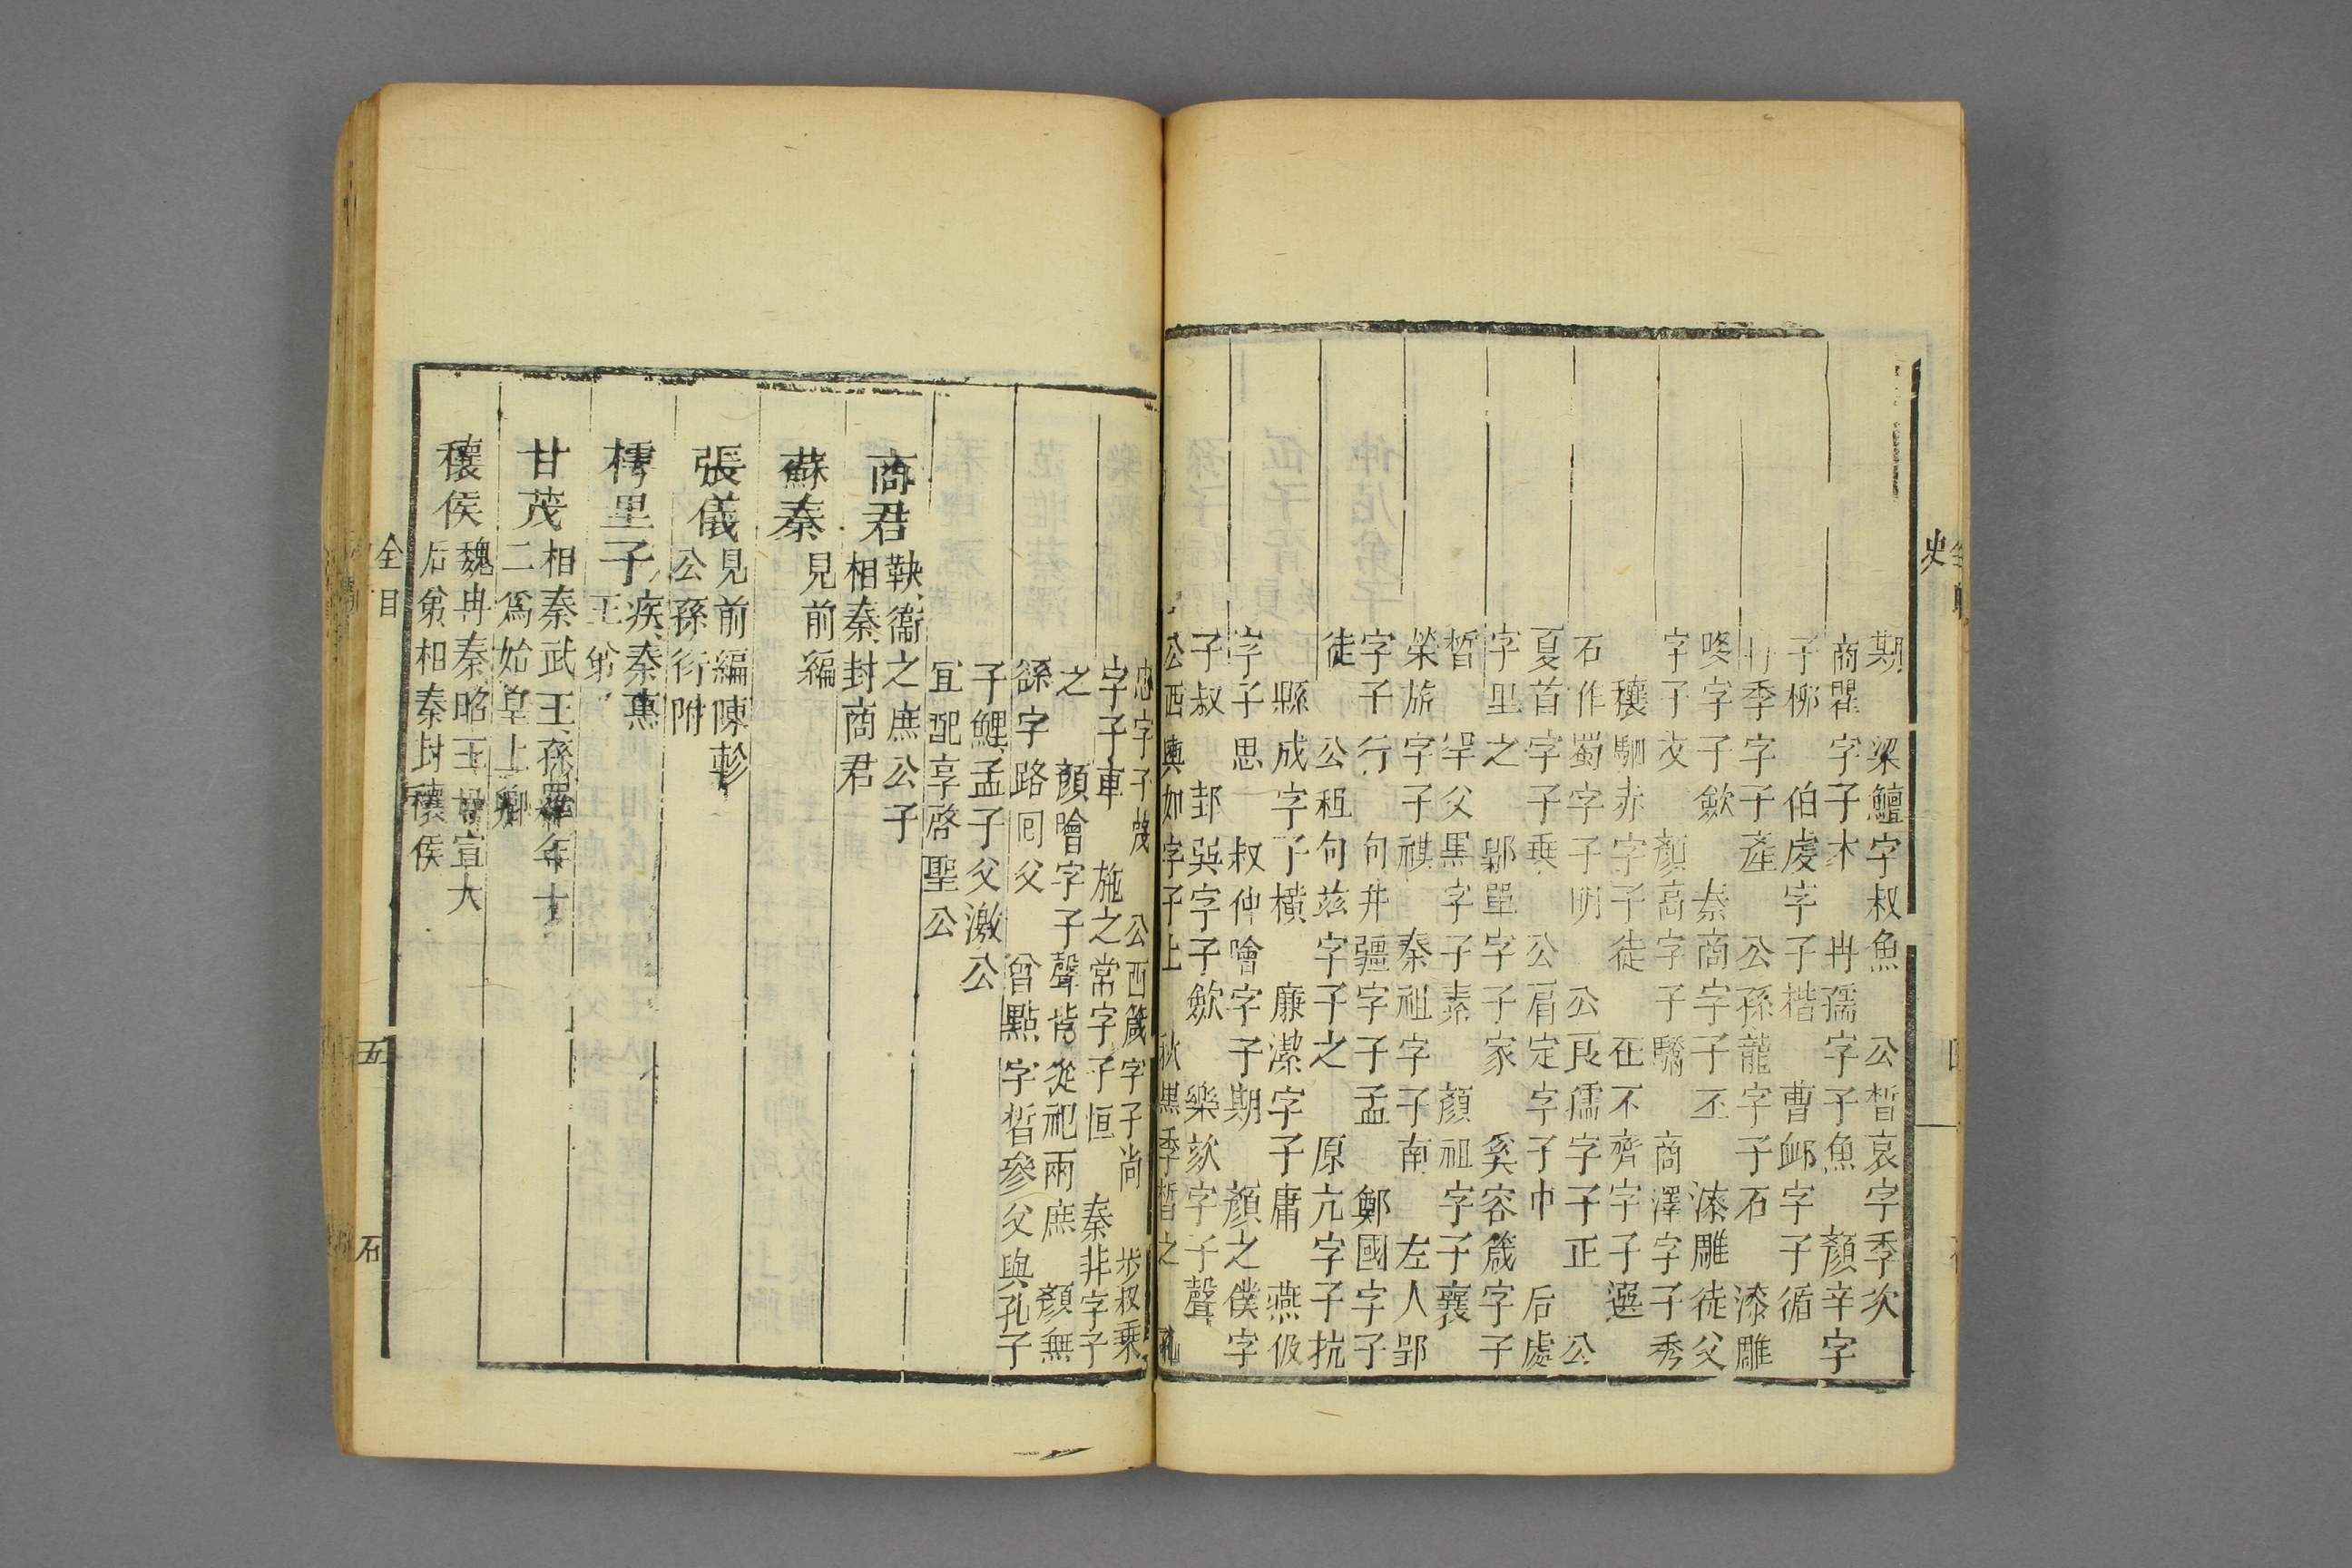 期　梁鱣字叔魚　公晳哀字季次
商瞿字子木　冉孺字子魚　顏辛字
子柳　伯虔字子楷　曹卹字子循
冉季字子產　公孫龍字子石　漆雕
哆字子歛　秦商字子丕　漆雕徒父
字子文　顏高字子驕　商澤字子秀
穰駟赤字子徒　任不齊字子選
石作蜀字子明　公良孺字子正　公
夏首字子乗　公肩定字子巾　后處
字里之　鄡單字子家　奚容箴字子
晳　罕父黑字子素　顏祖字子襄
榮旂字子祺　秦祖字子南　左人郢
字子行　句井疆字子孟　鄭國字子
徒　公祖句茲字子之　原亢字子抗
縣成字子橫　廉潔字子庸　燕伋
字子思　叔仲噲字子期　顏之僕字
子叔　邽巽字子歛　樂欬字子聲
公西輿如字子上　狄黑季晳之　孔
忠字子蔑　公西箴字子尚　步叔乗
字子車　施之常字子恒　秦非字子
之　顏噲字子聲皆從祀兩廡　顏無
繇字路回父　曾點字晳參父與孔子
子鯉孟子父激公
宜配享啓聖公
商君
鞅衞之庶公子
相秦封商君
蘇秦
見前編
張儀
見前編陳軫
公孫衍附
樗里子
疾秦惠
王弟
甘茂
相秦武王孫羅年十
二爲始皇上卿
穰侯
魏冉秦昭王母宣大
后弟相秦封穰侯
史
全目
五
石